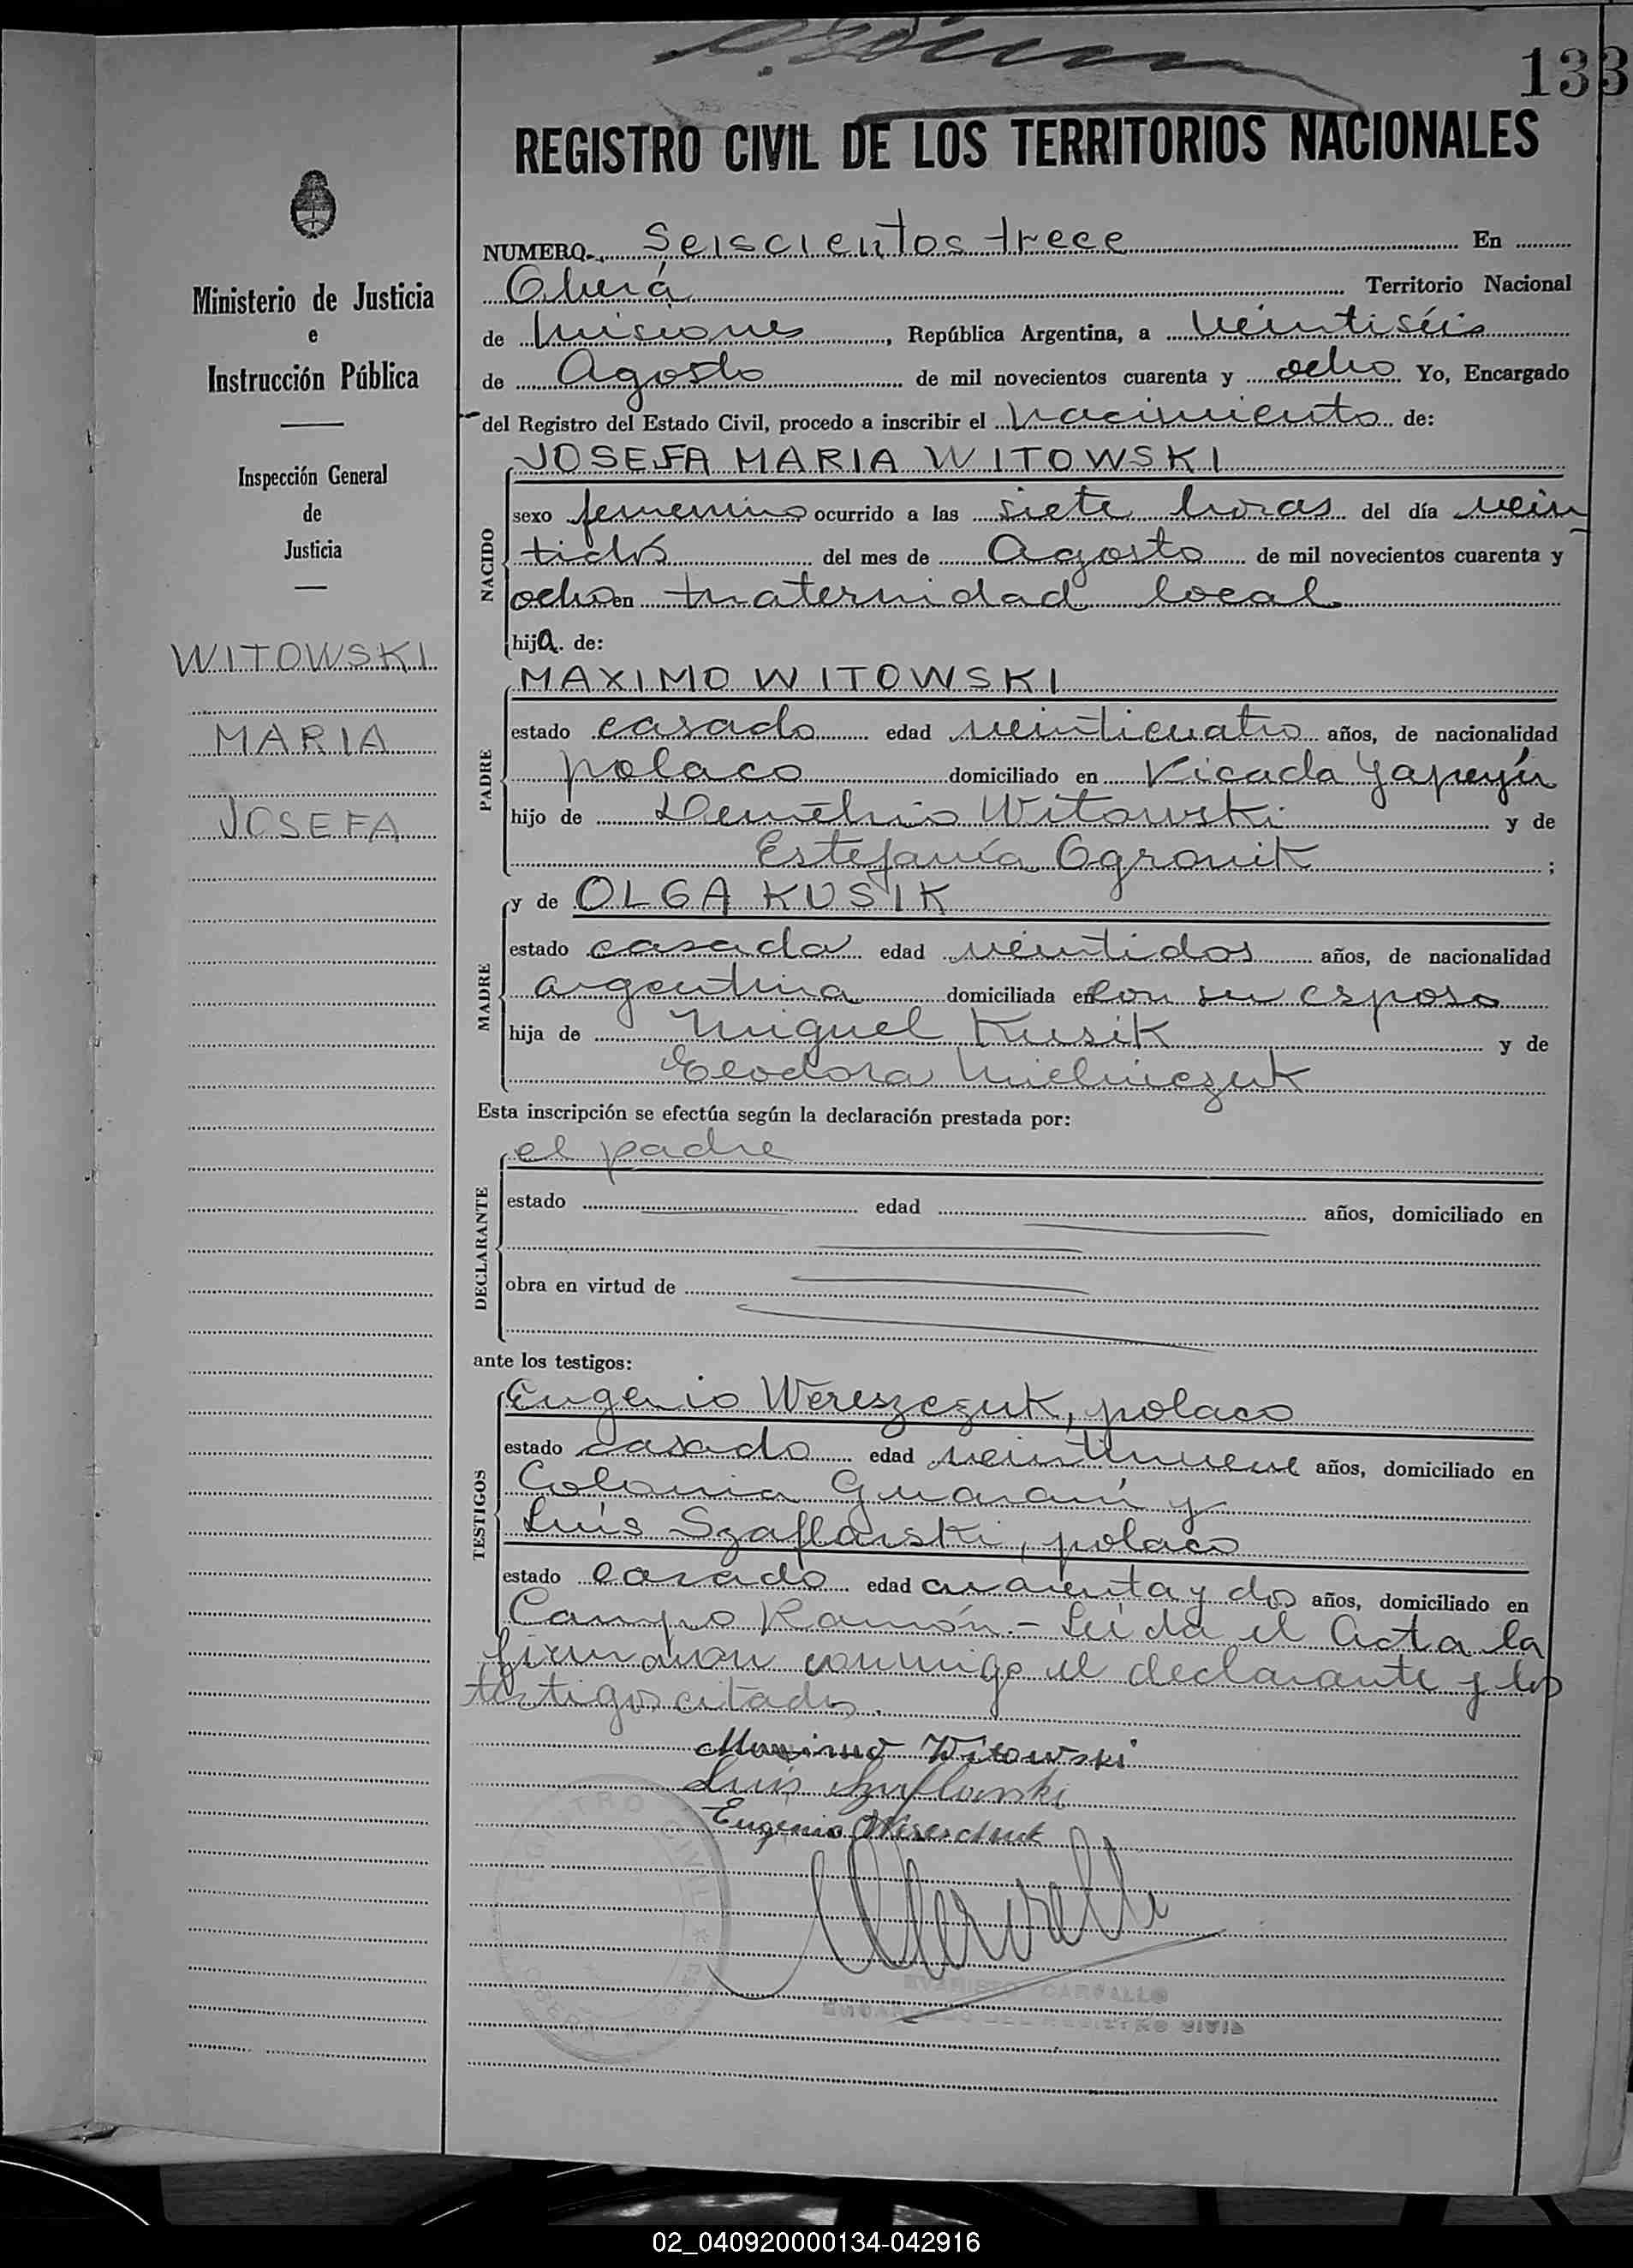 133
REGISTRO CIVIL DE LOS TERRITORIOS NACIONALES
Ministerio de Justicia
e
Instrucción Pública
Inspección General
de
Justicia
WITOWSKI
MARIA
JOSEFA
NUMERO.- Seiscientos trece En
Oberá Territorio Nacional
de Misiones, República Argentina, a veintiséis
de Agosto de mil novecientos cuarenta y ocho Yo, Encargado
del Registro del Estado Civil, procedo a inscribir el nacimiento de:
NACIDO
JOSEFA MARIA WITOWSKI
sexo femenino ocurrido a las siete horas del día vein
tidós del mes de Agosto de mil novecientos cuarenta y
ocho en maternidad local
hija. de:
PADRE
MAXIMO WITOWSKI
estado casado edad veinticuatro años, de nacionalidad
polaco domiciliado en Picada Yapeyú
hijo de Demetrio Witowski y de
Estefanía Ogronik ;
MADRE
y de OLGA KUSIK
estado casada edad veintidos años, de nacionalidad
argentina domiciliada en con su esposo
hija de Miguel Kusik y de
Eleodora Mielniczuk
Esta inscripción se efectúa según la declaración prestada por:
DECLARANTE
el padre
estado edad años, domiciliado en
obra en virtud de
ante los testigos:
TESTIGOS
Eugenio Wereszczuk, polaco
estado casado edad veintinueve años, domiciliado en
Colonia Guaraní y
Luís Szaflarski, polaco
estado casado edad cuarenta y dos años, domiciliado en
Campo Ramón.- Leída el Acta la
firmaron conmigo el declarante y los
testigos citados.
Maximo Witowski
Luis Szaflarski
Eugenio
REGISTRO CIVIL
EVARISTO CARVALLO
ENCARGADO DEL REGISTRO CIVIL
02_040920000134-042916